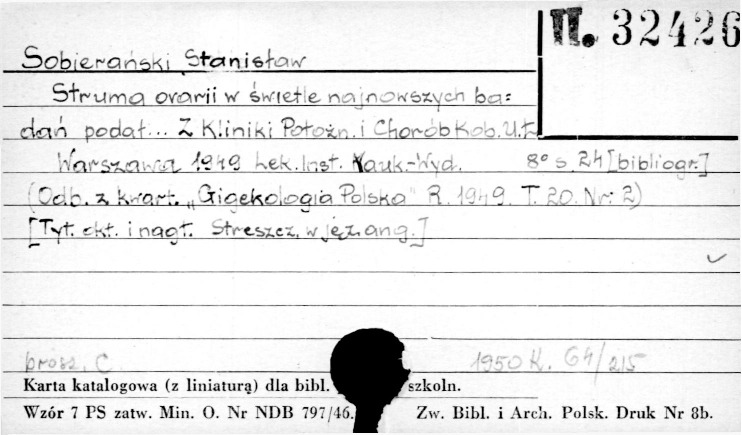 II. 32426
Sobierański Stanisław
Struma ovarii w świetle najnowszych ba=
dań podał... Z Kliniki Położn. i Chorób Kob. U.Ł.
Warszawa 1949 Lek. Inst. Nauk-Wyd. 8° s. 24 [bibliogr.]
(Odb. z kwart. „Gigekologia Polska" R. 1949. T. 20. Nr: 2)
[Tyt. okł. i nagł. Streszcz. w jęz. ang.]
brosz. C 1950 K. 64/215
Karta katalogowa (z liniaturą) dla bibl. szkoln.
Wzór 7 PS zatw. Min. O. Nr NDB 797/46. Zw. Bibl. i Arch. Polsk. Druk Nr 8b.